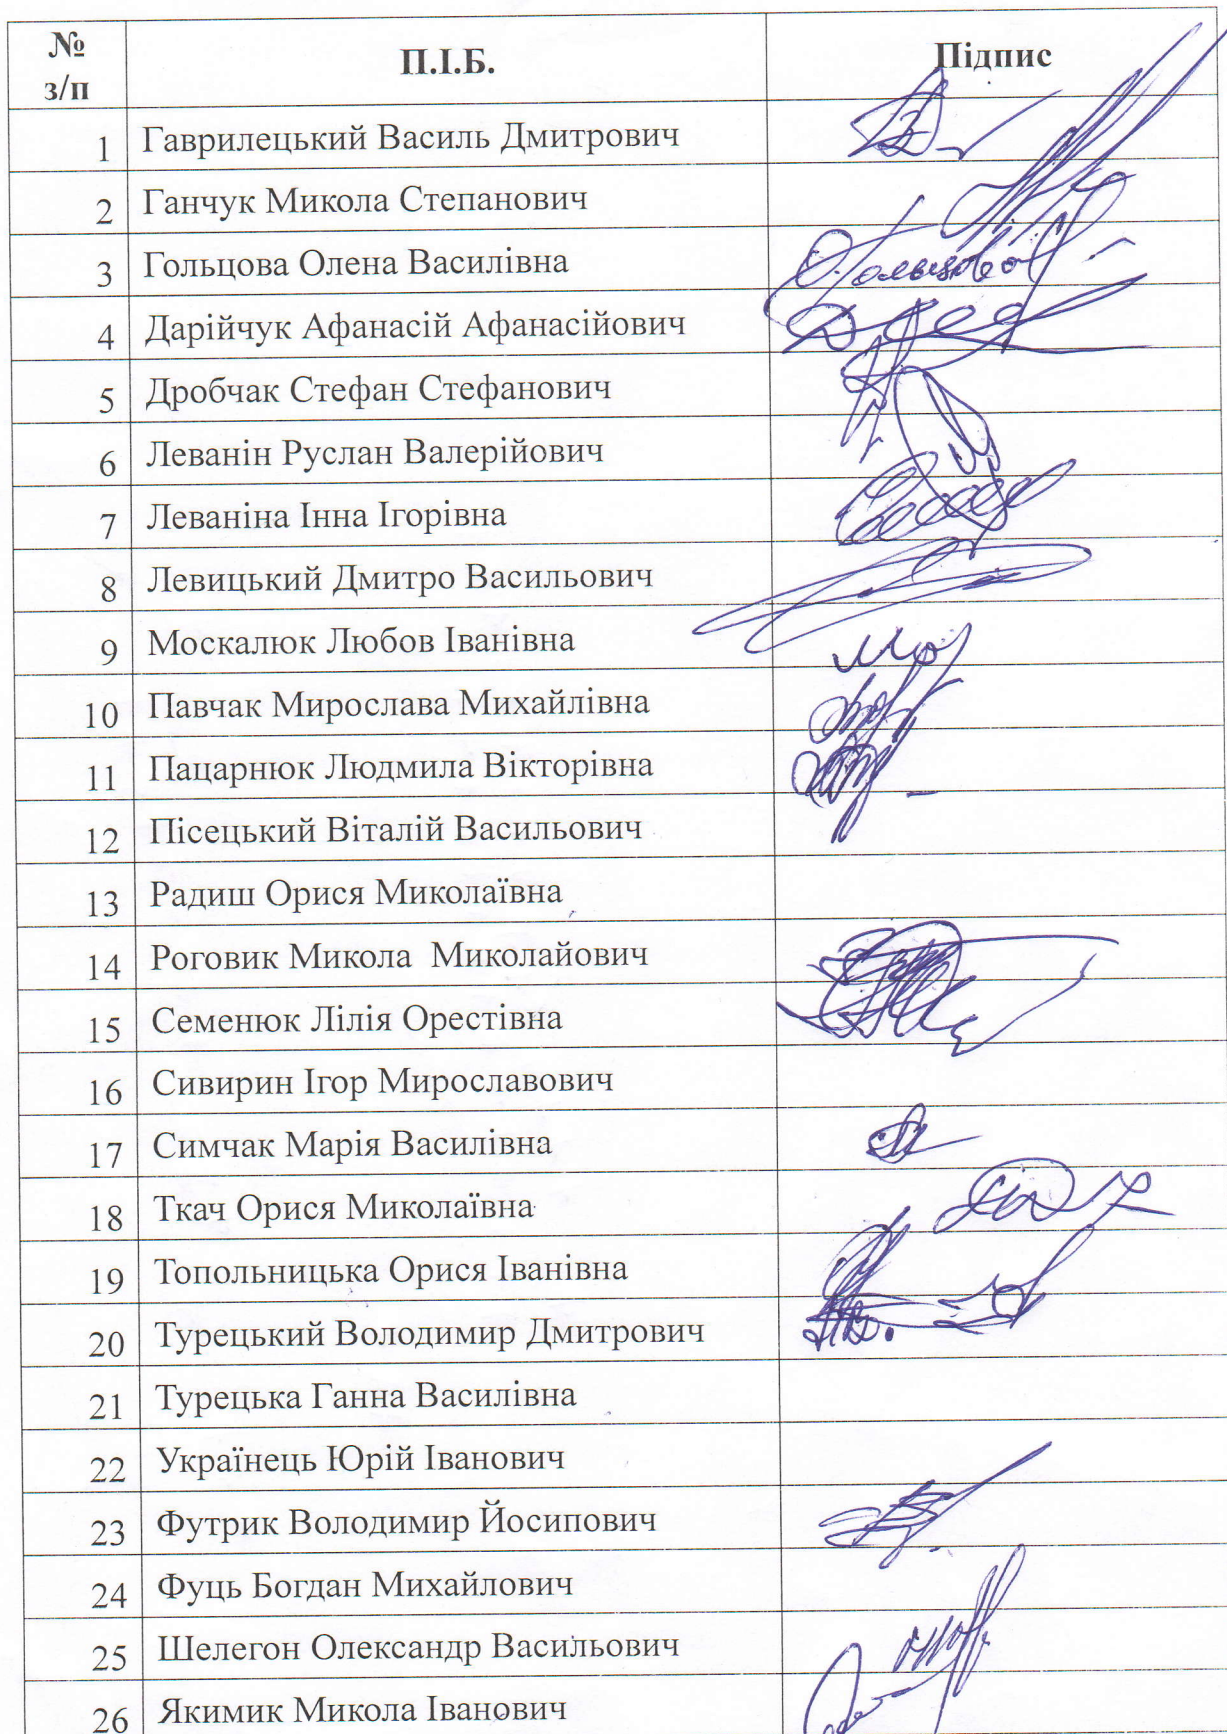 № з/п П.І.Б. Підпис
1 Гаврилецький Василь Дмитрович
2 Ганчук Микола Степанович
3 Гольцова Олена Василівна Гольцова
4 Дарійчук Афанасій Афанасійович
5 Дробчак Стефан Стефанович
6 Леванін Руслан Валерійович
7 Леваніна Інна Ігорівна
8 Левицький Дмитро Васильович
9 Москалюк Любов Іванівна
10 Павчак Мирослава Михайлівна
11 Пацарнюк Людмила Вікторівна
12 Пісецький Віталій Васильович
13 Радиш Орися Миколаївна
14 Роговик Микола Миколайович
15 Семенюк Лілія Орестівна
16 Сивирин Ігор Мирославович
17 Симчак Марія Василівна
18 Ткач Орися Миколаївна
19 Топольницька Орися Іванівна
20 Турецький Володимир Дмитрович
21 Турецька Ганна Василівна
22 Українець Юрій Іванович
23 Футрик Володимир Йосипович
24 Фуць Богдан Михайлович
25 Шелегон Олександр Васильович
26 Якимик Микола Іванович